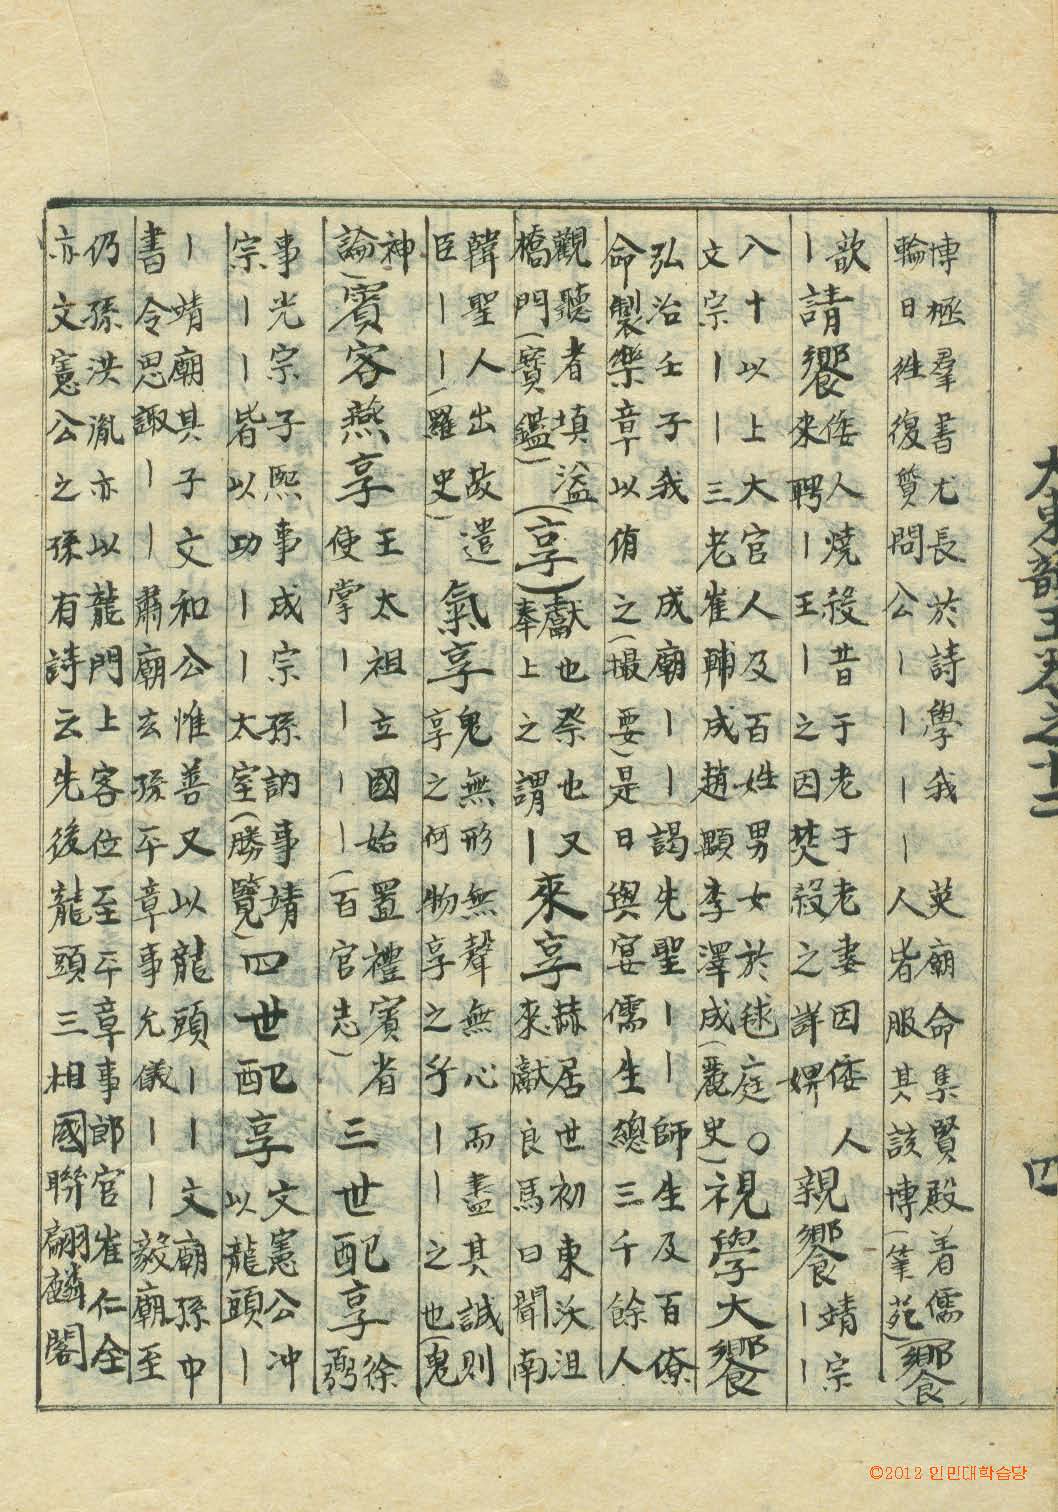 大東韻玉卷之十二
四
博極羣書尤長於詩學我 英廟命集賢殿着儒
輪日徃復質問公丨丨丨丨人皆服其該博(筆苑)
(饗)
歆
丨
請饗
倭人燒殺昔于老于老妻因倭人
來聘丨王丨之因焚殺之詳婢
親饗
靖宗
丨丨
八十以上大官人及百姓男女於毬庭○
文宗丨丨三老崔輔成趙顯李澤成(麗史)
視學大饗
弘治壬子我 成廟丨丨謁先聖丨丨師生及百僚
命製樂章以侑之(撮要)是日與宴儒生總三千餘人
觀聽者填溢
橋門(寶鑑)
(享)
獻也祭也又
奉上之謂丨
來享
赫居世初東沃沮
來獻良馬曰聞南
韓聖人出故遣
臣丨丨(羅史)
氣享
鬼無形無聲無心而盡其誠則
享之何物享之乎丨丨之也(鬼
神
論)
賓客燕享
王太祖立國始置禮賓省
使掌丨丨丨丨(百官志)
三世配享
徐
弼
事光宗子熙事成宗孫訥事靖
宗丨丨皆以功丨丨太室(勝覽)
四世配享
文憲公冲
以龍頭丨
丨靖廟其子文和公惟善又以龍頭丨丨文廟孫中
書令思諏丨丨肅廟玄孫平章事允儀丨丨毅廟至
仍孫洪胤亦以龍門上客位至平章事郎官崔仁全
亦文憲公之孫有詩云先後龍頭三相國聯翩麟閣
©2012 인민대학습당